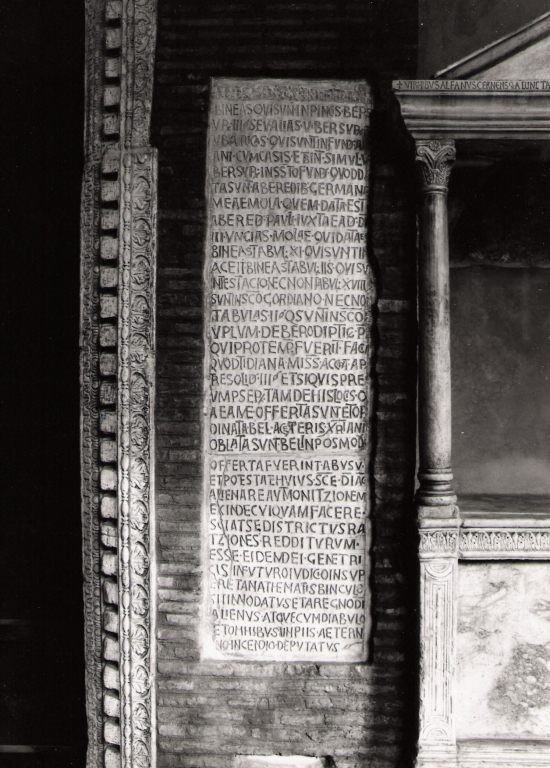 + VIR PROBUS ALFANUS CERNENS
BINEAS QVI SVN INPINCIS BEP
VBARICAS·QVI SVNT IN FVND
ANI·CVM CASIS ET BIN·SIMVL·V
BERSVR·INSSTO FVND·QVOD D
TA SVNT AB EREDIB·GERMAN
MEAE MOLA·QVEM DATA EST
AB ERED·PAVLI IVXTA EAD·D
III VNCIAS·MOLAE·QVI DATA E
BINEAS TABVL·XI·QVI SVNT II
ACEII·BINEAS TABVL·IIS·QVI SV
INTESTACIONE C NON TABVL·XVIII
SVNT INSCO GORDIANO·NECNO
TABVLAS II·Q SVNT INSCO
VPLVM·DEBERO DIPTIC·P
QVI PRO TEMP FVERIT·FACI
QVOD TIDIANA MISSA C ET AP
RE SOLID·III·ET SI QVIS PRE
VMPSER·TAM DE HIS LOCS·Q
A EA ME OFFERTA SVNT ET OR
DINATA BEL A CETERIS XPIANI
OBLATA SVNT BEL IN POSMOD
OFFERTA FVERINT ABVSV·V
ET POTESTATE HVIVS·SCE·DIA
ALIENARE AVMONITZIONEM
EXINDE CVIQVAM FACERE·
SCIAT SE DISTRICTVS RA
TZIONES REDDITVRVM·
ESSE·EIDEM DEI GENETRI
CIS IN FVTVRO IVDICIO INSVP
ER ET ANATHEMATIS BINCVLO
SIT INNODATVS ET A REGNO DI
ALIENVS·ATQVE CVM DIABVLO
ET OMNIBVS INPIIS·AETERN
NO INCENDIO DEPVTATVS